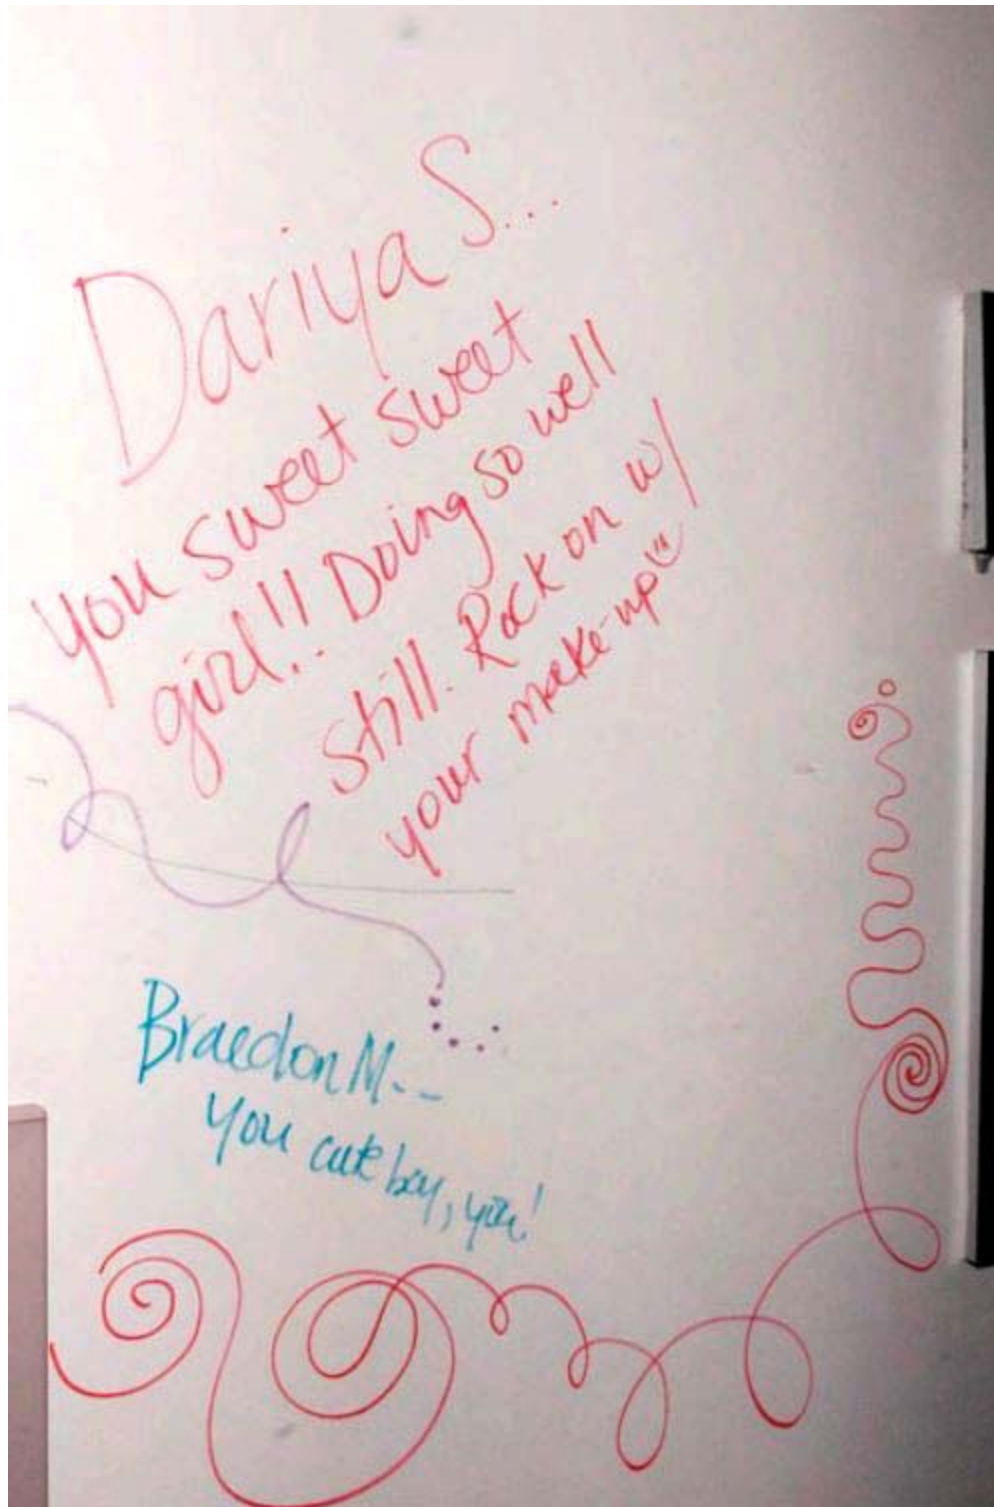 Dariya S...
you sweet sweet
girl!! Doing so well
still. Rock on w/
your make-up
Braedon M--
you cute boy, you!